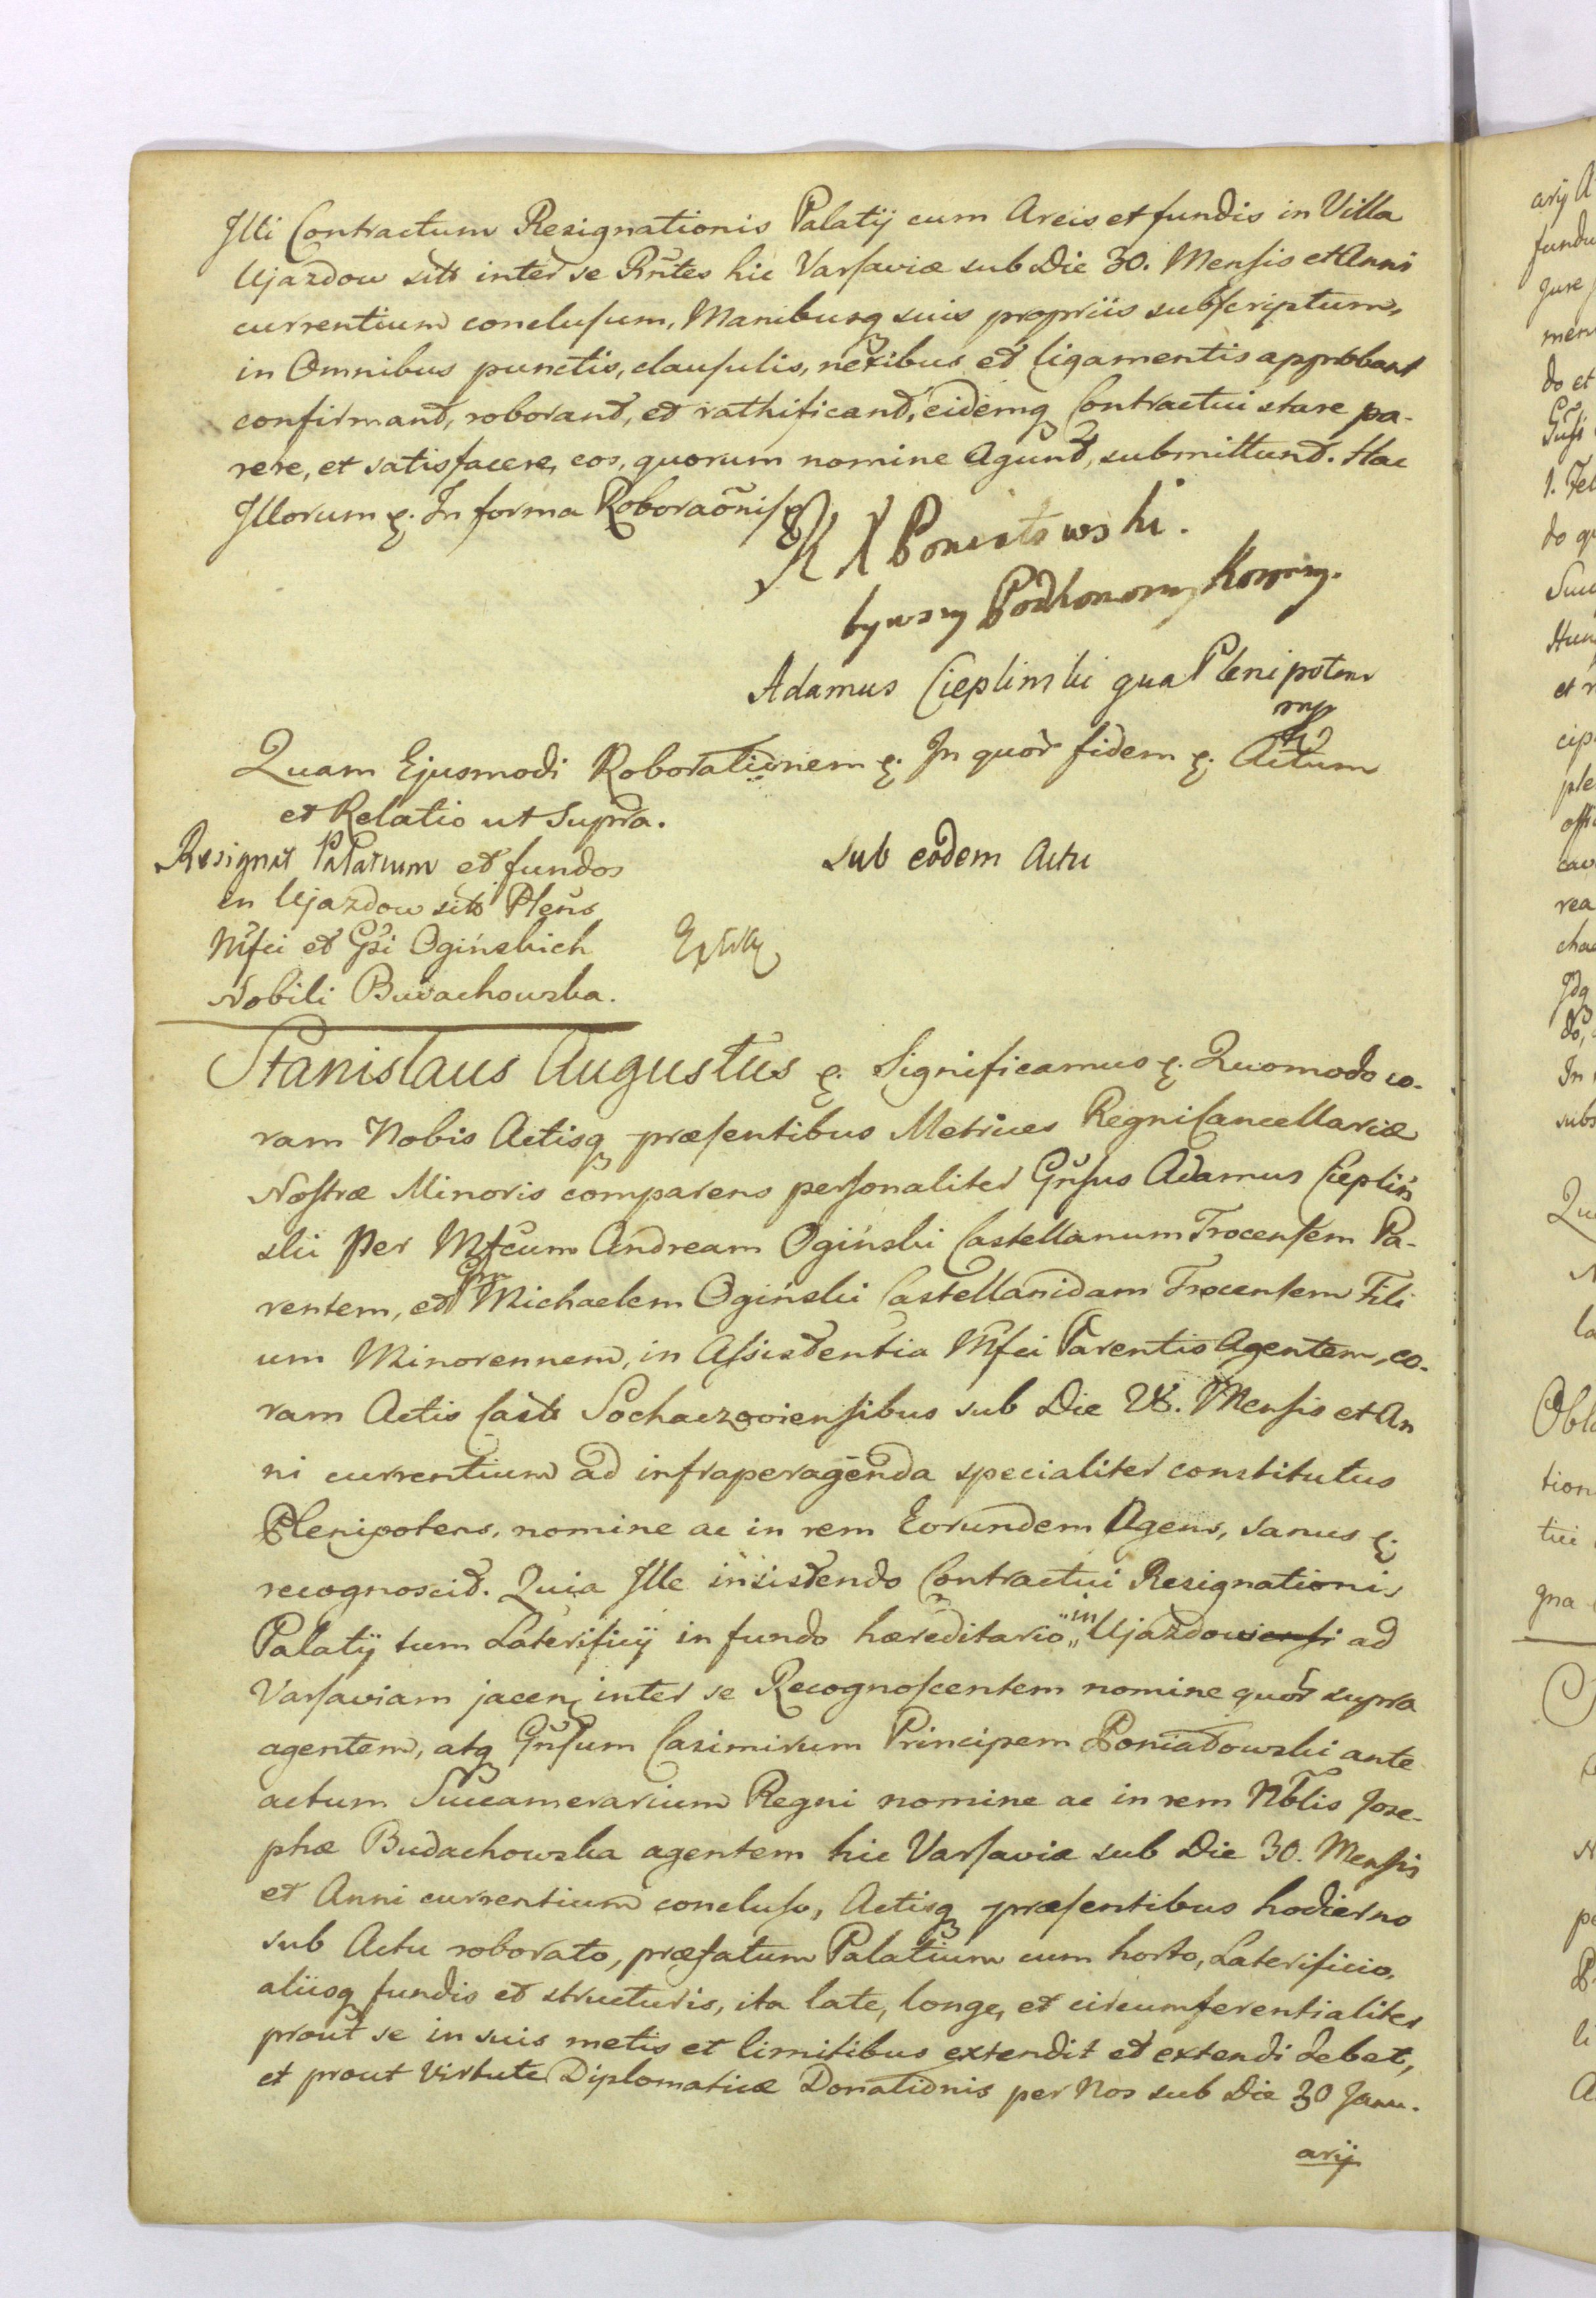 Illi Contractum Resignationis Palatij cum Areis et fundis in Villa
Ujazdow sits inter se Rñtes hic Varsaviæ sub Die 30. Mensis et Anni
currentium conclusum, Manibusq suis propriis subscriptum,
in Omnibus punctis, clausulis, nexibus et ligamentis approbant
confirmant, roborant, et rathificant, eidemq Contractui stare pa-
rere, et satisfacere, eos, quorum nomine Agunt, submittunt. Hac
Illorum &. In forma Roboraõnis &
K X Poniatowski.
bywszy Podkomorzy Koronny.
Adamus Cieplinski qua Plenipotens
mp
Quam Ejusmodi Roborationem &. In quor fidem &. Actum
et Relatio ut Supra.
Resignat Palatium et fundos
in Ujazdow sits Pleñs
Mfci et Gsi Ogińskich
Nobili Budachowska.
sub eodem Actu
Stanislaus Augustus &. Significamus &. Quomodo co-
ram Nobis Actisq præsentibus Metrices Regni Cancellariæ
Nostræ Minoris comparens personaliter Gñsus Adamus Cieplin
ski Per Mfcum Andream Ogiński Castellanum Trocensem Pa-
rentem, et Gm Michaelem Ogiński Castellanidam Trocensem Fili
um Minorennem, in Assistentia Mfci Parentis Agentem, co-
ram Actis Casts Sochaczoviensibus sub Die 28. Mensis et An
ni currentium ad infraperagenda specialiter constitutus
Plenipotens, nomine ac in rem Eorundem Agens, sanus &.
recognoscit. Quia Ille insistendo Contractui Resignationis
Palatij tum Laterificij in fundo hæreditario „in Ujazdowiensi ad
Varsaviam jacen, inter se Recognoscentem nomine quor supra
agentem, atq Gñsum Casimirum Principem Poniatowski ante
actum Succamerarium Regni nomine ac in rem Nblis Jose-
phæ Budachowska agentem hic Varsaviæ sub Die 30. Mensis
et Anni currentium concluso, Actisq præsentibus hodierno
sub Actu roborato, præfatum Palatium cum horto, Laterificio,
aliisq fundis et structuris, ita late, longe, et circumferentialiter
prout se in suis metis et limitibus extendit et extendi debet,
et prout virtute Diplomaticæ Donationis per Nos sub Die 30 Janu-
arij